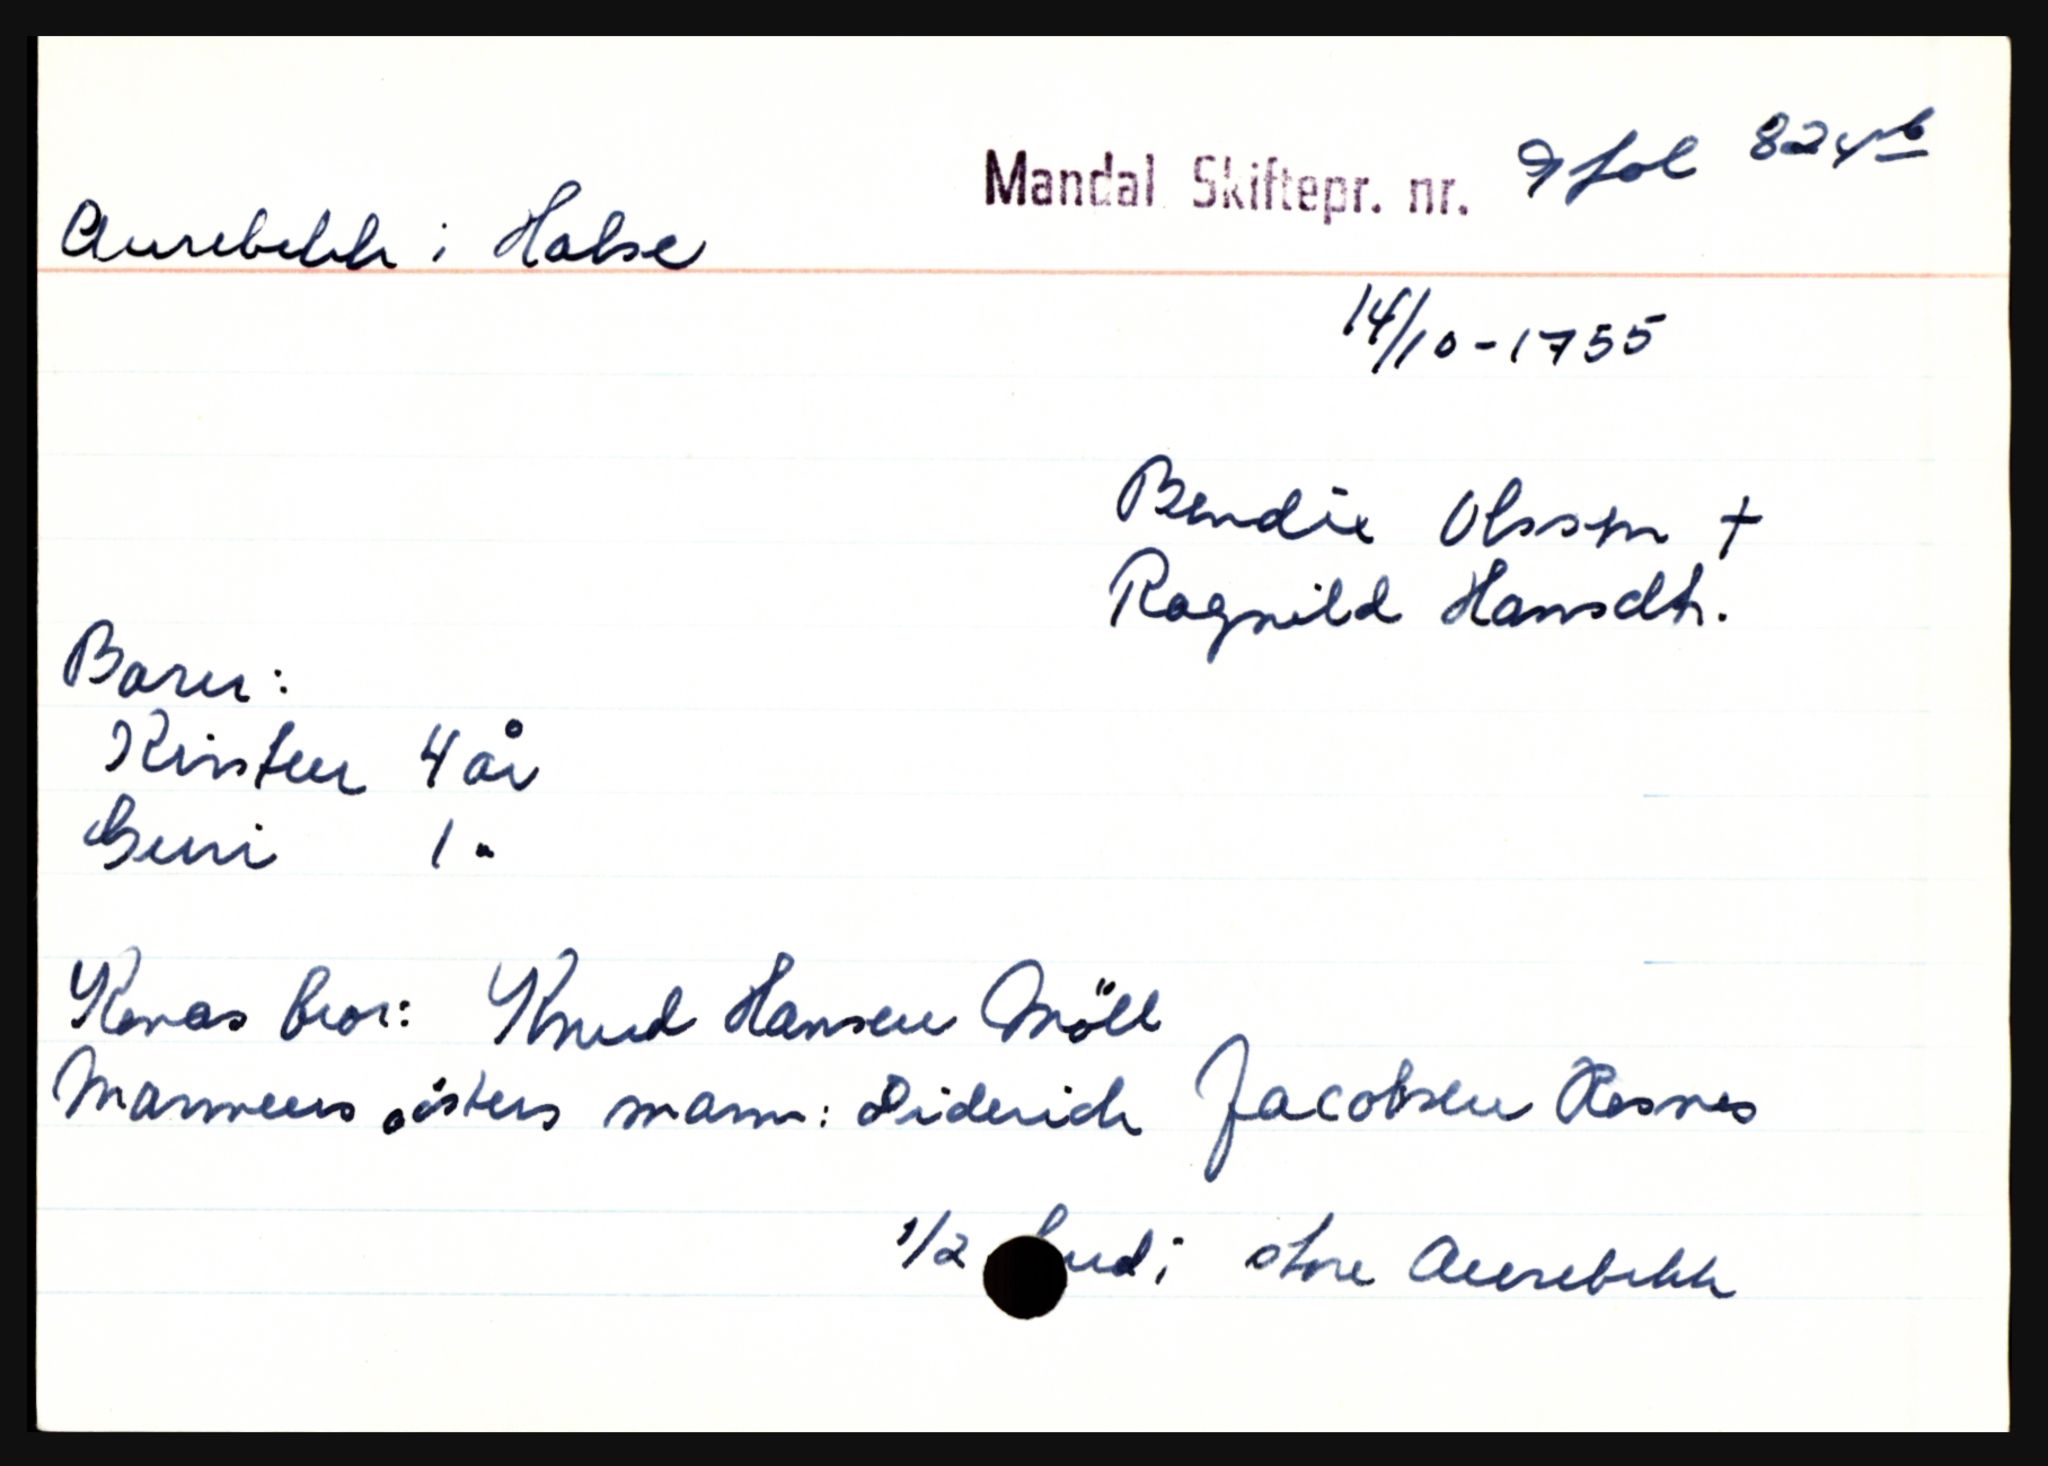 Mandal Skiftepr. nr. 9 fol 824b
Aurebekk i Halse
14/10-1755
Bendix Olssen +
Ragnild Hansdtr.
Barn:
Kirsten 4 år
Guri 1 "
Konas bror: Knud Hansen Möll
Mannens søsters mann: Diderich Jacobsen Røsnes
1/2 hud i store Aurebekk